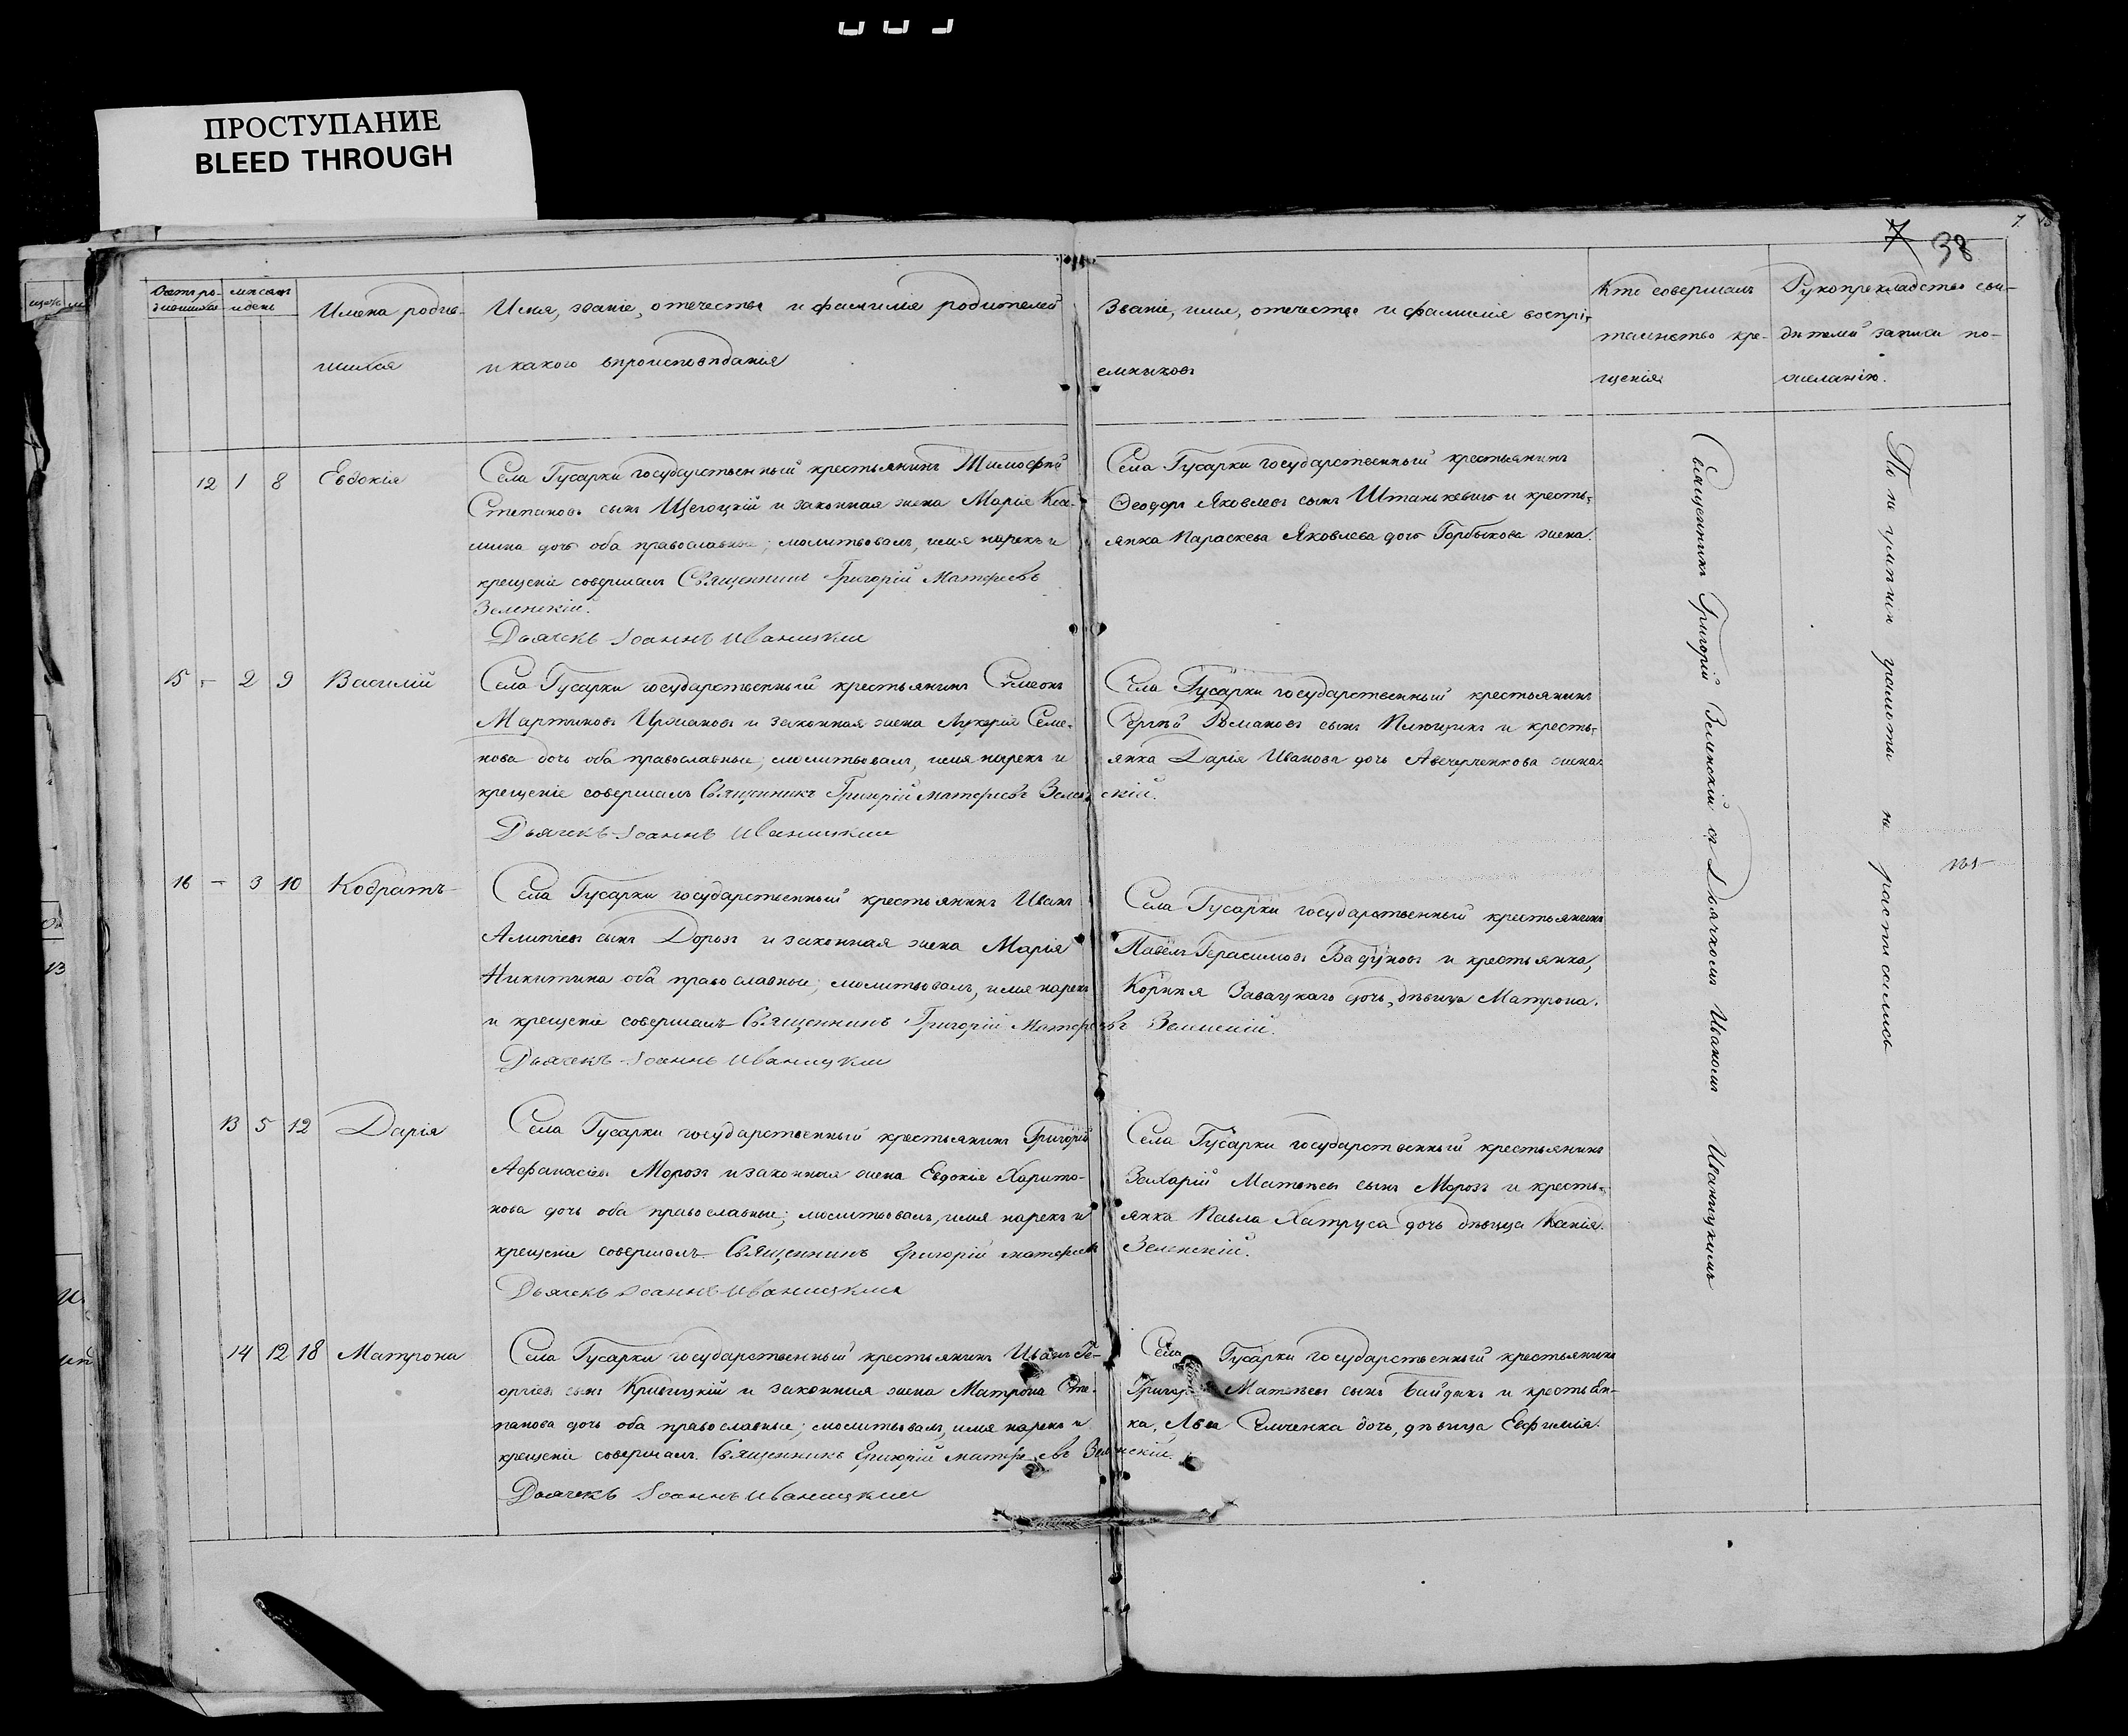 ПРОСТУПАНИЕ
BLEED THROUGH
7 38
7
Счетъ ро- мѣсяцъ
дившихся и день
Имена родив-
шихся
Имя, званіе, отечество и фамилія родителей
и какого вѣроисповѣданія
Званіе, имя, отечество и фамилія воспрі-
емниковъ
Кто совершалъ
таинство кре-
щенія
Рукоприкладство сви-
дѣтелей записи по-
желанію.
12 1 8 Евдокія
Села Гусарки государственный крестьянинъ Тимофей
Степановъ сынъ Щегоцкій и законная жена Марія
дочь оба православные; молитвовалъ, имя нарекъ и
крещеніе совершалъ Священникъ Григорій Матфеевъ
Зеленскій.
Дьячекъ Іоаннъ Иваницкий
Села Гусарки государственный крестьянинъ
Феодоръ Яковлевъ сынъ Штанькевичъ и кресть-
янка Параскева Яковлева дочь Горбыкова жена.
15 - 2 9 Василій
Села Гусарки государственный крестьянинъ Симеонъ
Мартиновъ и законная жена Лукерія Семе-
нова дочь оба православные; молитвовалъ, имя нарекъ и
крещеніе совершалъ Священникъ Григорій Матфеевъ Зеленскій.
Дьячекъ Іоаннъ Иваницкий
Села Гусарки государственный крестьянинъ
Сергѣй Романовъ сынъ Плющикъ и кресть-
янка Дарія Иванова дочь жена
16 - 3 10 Кодратъ
Села Гусарки государственный крестьянинъ Иванъ
Алипіевъ сынъ и законная жена Марія
Никитина оба православные; молитвовалъ, имя нарекъ
и крещеніе совершалъ Священникъ Григорій Матфеевъ Зеленскій.
Дьячекъ Іоаннъ Иваницкий
Села Гусарки государственный крестьянинъ
Павелъ Герасимовъ Бадуновъ и крестьянка,
Корнія Завацкаго дочь, дѣвица Матрона.
13 5 12 Дарія
Села Гусарки государственный крестьянинъ Григорій
Афанасіевъ Морозъ и законная жена Евдокія Харито-
нова дочь оба православные; молитвовалъ, имя нарекъ и
крещеніе совершалъ Священникъ Григорій Матфеевъ
Дьячекъ Іоаннъ Иваницкий
Села Гусарки государственный крестьянинъ
Захарій Матвѣевъ сынъ Морозъ и кресть-
янка Павла Хатруса дочь дѣвица
Зеленскій.
14 12 18 Матрона
Села Гусарки государственный крестьянинъ Иванъ Ге-
оргіевъ сынъ Кривицкій и законная жена Матрона Сте-
панова дочь оба православные; молитвовалъ, имя нарекъ и
крещеніе совершалъ Священникъ Григорій Матфеевъ Зеленскій.
Дьячекъ Іоаннъ Иваницкий
Села Гусарки государственный крестьянинъ
Григорій Матвѣевъ сынъ Байдакъ и крестьян-
ка, Льва дочь, дѣвица Евфимія.
Священникъ Григорій Зеленскій съ Дьячкомъ Иваномъ Иваницкимъ
По не умѣнія грамоты не росписались